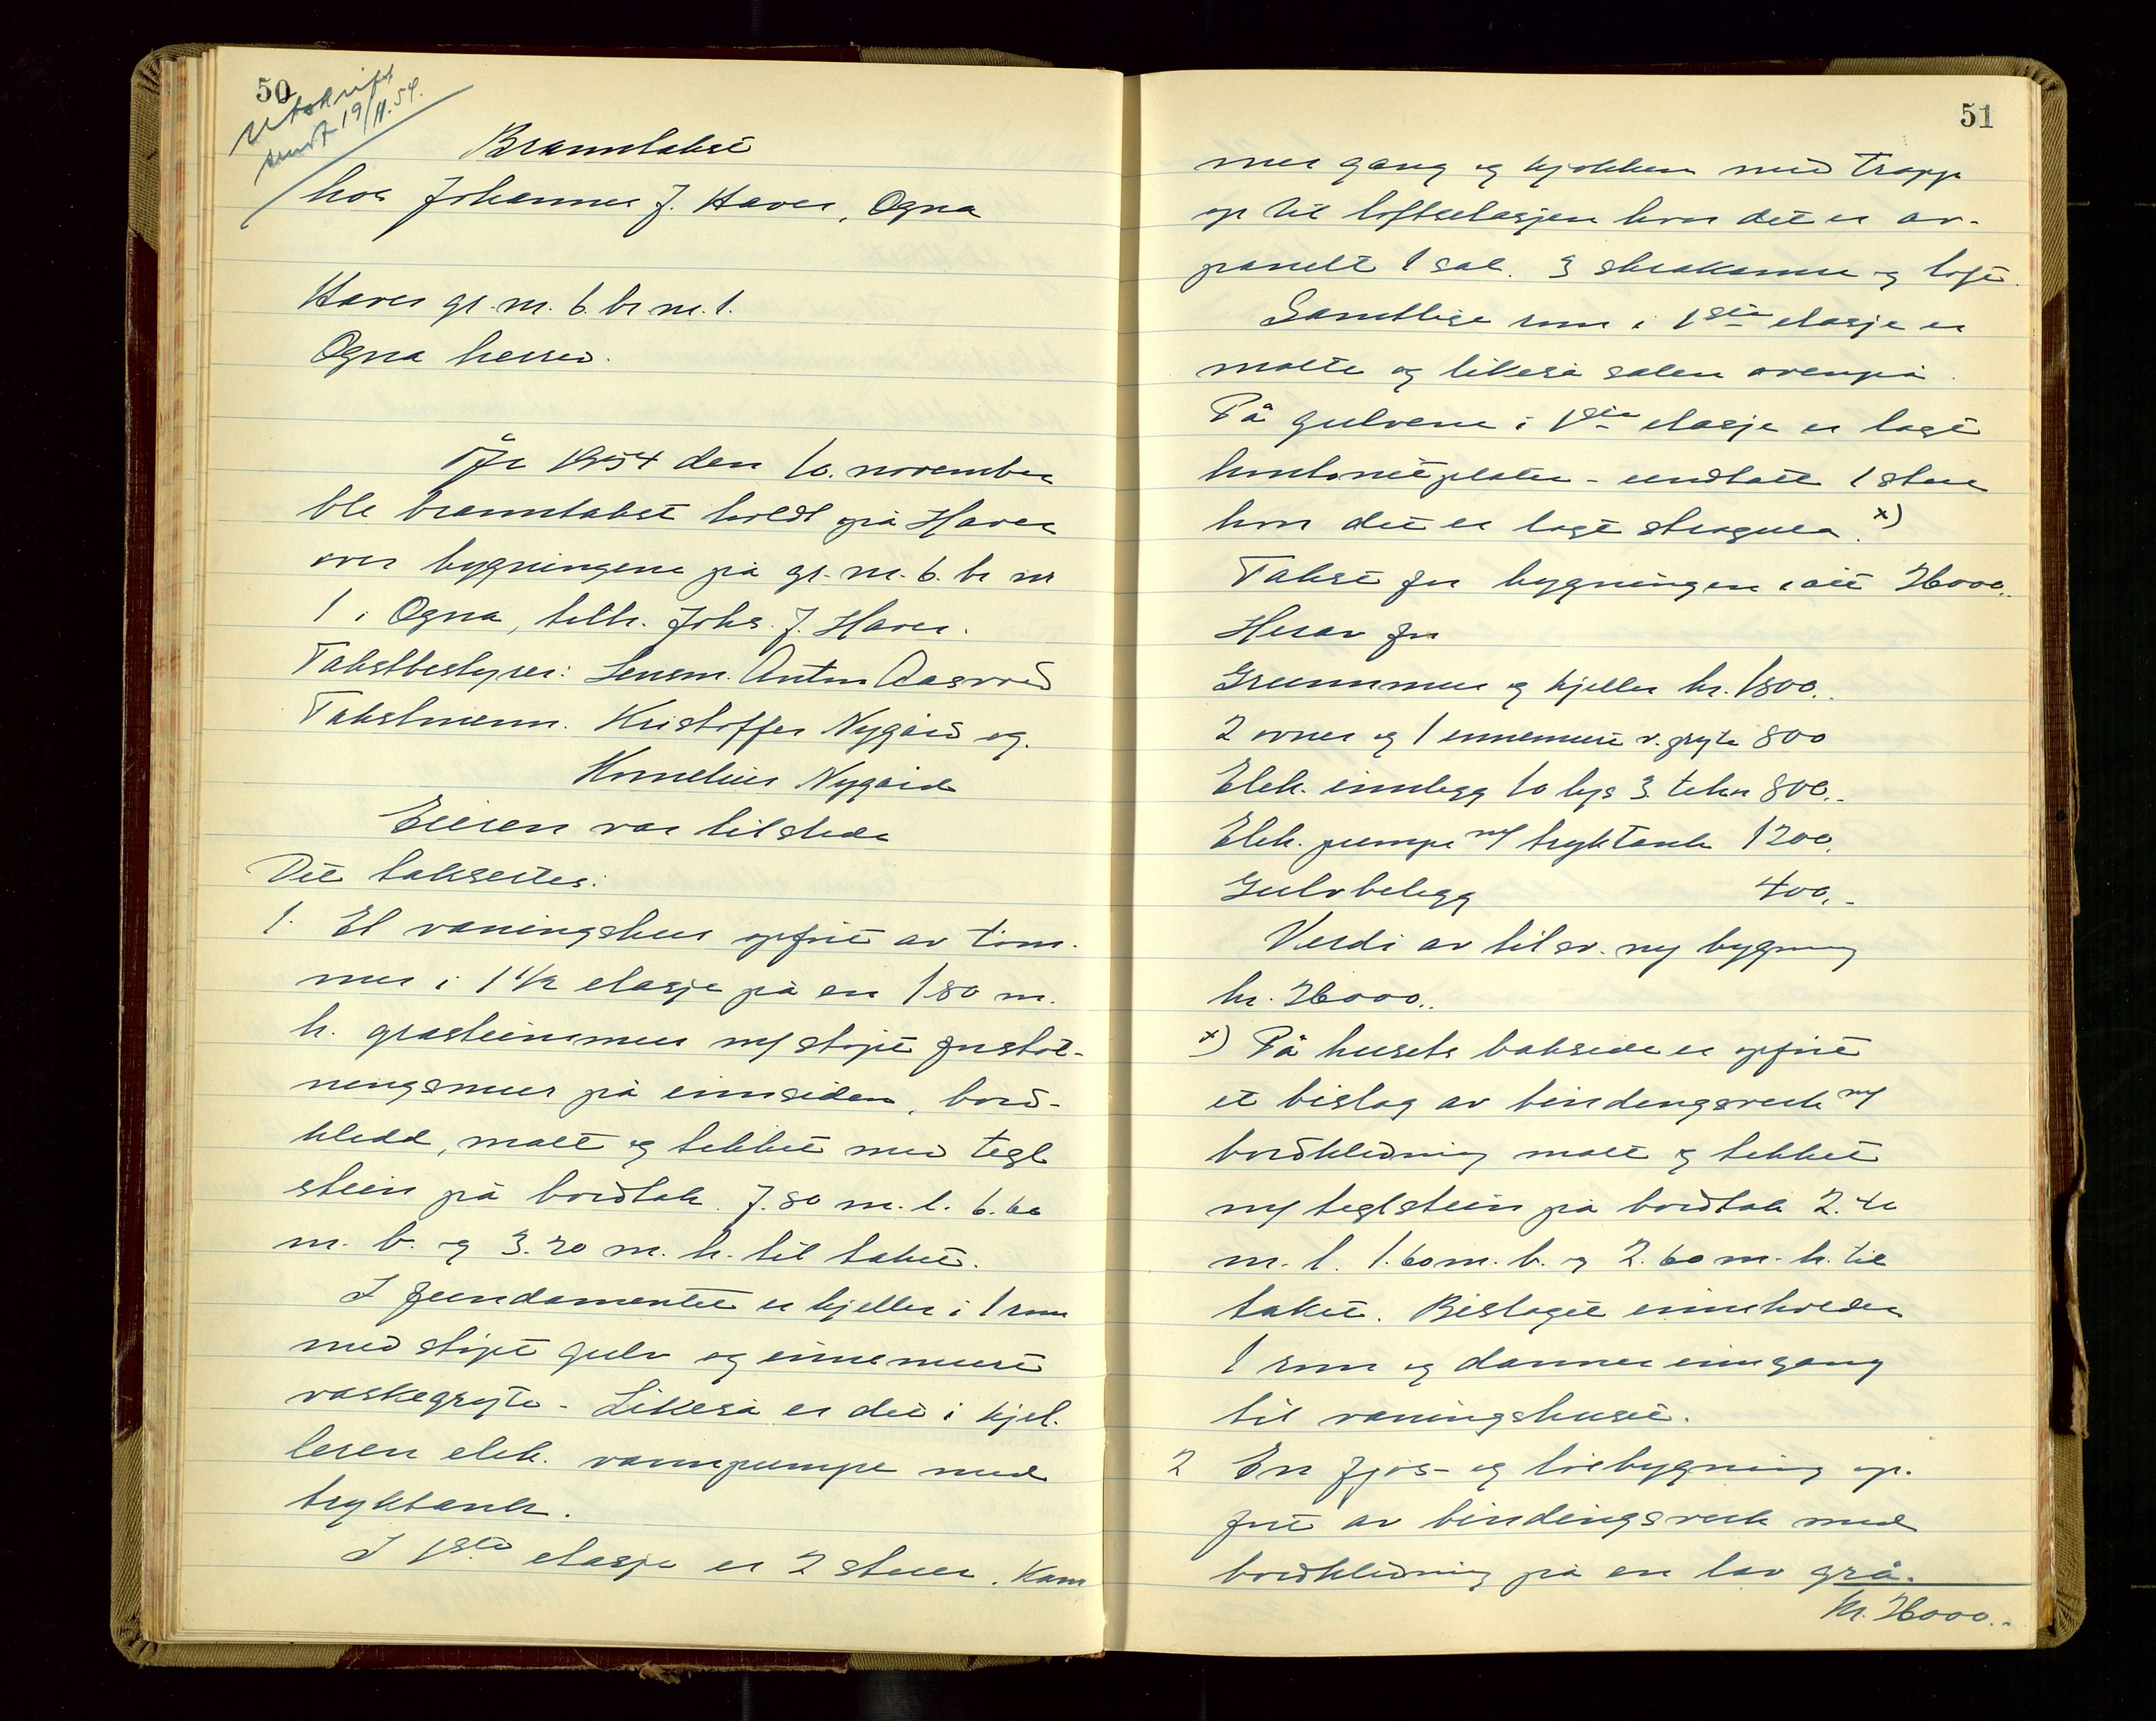 50
Utskrift
sendt 19/11.54.
Branntakst
hos Johannes J. Haver, Ogna
Haver gr. nr. 6. br nr. 1.
Ogna herred.
År 1954 den 10. november
ble branntakst holdt på Haver
over bygningene på gr. nr. 6. br nr
1 i Ogna, tilh. Johs. J. Haver.
Takstbestyrer: Lensm. Anton Aasvord
Takstmenn. Kristoffer Nygård og
Kornelius Nygård
Eieren var tilstede
Det taksertes:
1. Et våningshus opført av tøm-
mer i 1 1/2 etasje på en 1.80 m.
h. gråsteinsmur m/ støpt forstøt-
ningsmur på innsiden, bord-
kledd, malt og tekket med tegl
stein på bordtak. 7.80 m. l. 6.60
m. b. og 3.20 m. h. til taket.
I fundamentet er kjeller i 1 rom
med støpt gulv og innemuret
vaskegryte - Likeså er det i kjel-
leren elek. vannpumpe med
trykktank.
I 1ste etasje er 2 stuer. Kam
51
mer gang og kjøkken med trapp
op til loftsetasjen hvor det er av-
panelt 1 sal. 3 skråkammer og loft.
Samtlige rom i 1ste etasje er
malte og likeså salen ovenpå.
På gulvene i 1ste etasje er lagt
huntonitplater - undtatt 1 stue
hvor det er lagt stragula. x)
Takst for bygningen i alt 26000.-
Herav for
Grunnmur og kjeller kr. 1800.-
2 ovner og 1 innemuret v. gryte 800
Elek. innlegg 10 lys 3. tekn 800.-
Elek. pumpe m/ tryktank 1200.
Gulvbelegg 400.-
Verdi av tilsv. ny bygning
kr. 26000.-
x) På husets bakside er opført
et bislag av bindingsverk m/
bordkledning malt og tekket
m/ teglstein på bordtak 2.40
m. l. 1.60 m. b. og 2.60 m. h. til
taket. Bislaget inneholder
1 rom og danner inngang
til våningshuset.
2 En fjøs- og løebygning op-
ført av bindingsverk med
bordkledning på en lav grå-
Kr. 26000.-